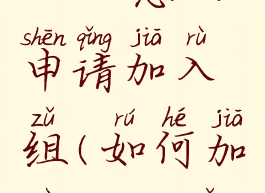 shēn qǐng jiā rù
申请加入
zǔ rú hé jiā
组(如何加